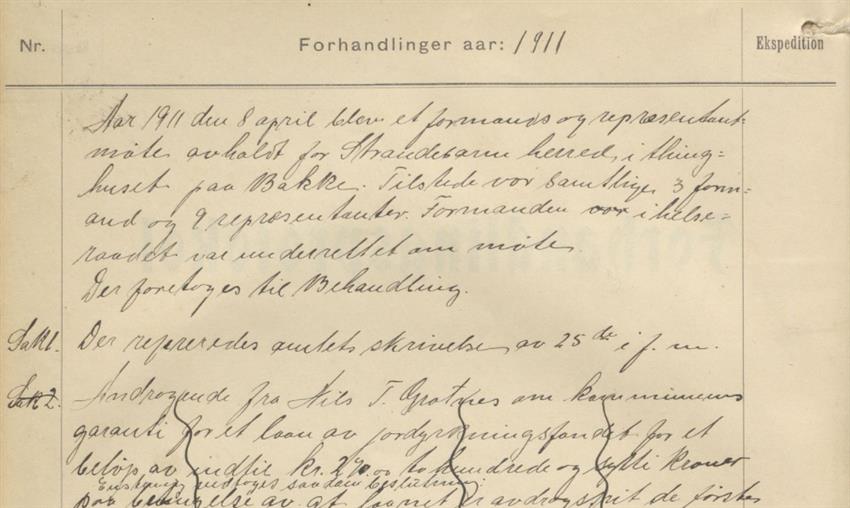 Nr.
Forhandlinger aar: 1911
Ekspedition
Aar 1911 den 8 april blev et formands og repræsentant-
møte avholdt for Strandebarm herred, i thing-
huset paa Bakke. Tilstede var samtlige 3 form-
ænd og 9 repræsentanter. Formanden var i helse-
raadet var underrettet om møte.
Der foretoges til Behandling.
Sak 1. Der refereredes amtets skrivelse av 25de i f. m.
Sak 2. Andragende fra Nils T. om kommunens
garanti for et laan av jordyrkningsfondet for et
beløp av indtil kr. 270.00 to hundrede og sytti kroner
Enstemmig saadan beslutning:
paa betingelse av at laanet er avdragsfrit de første